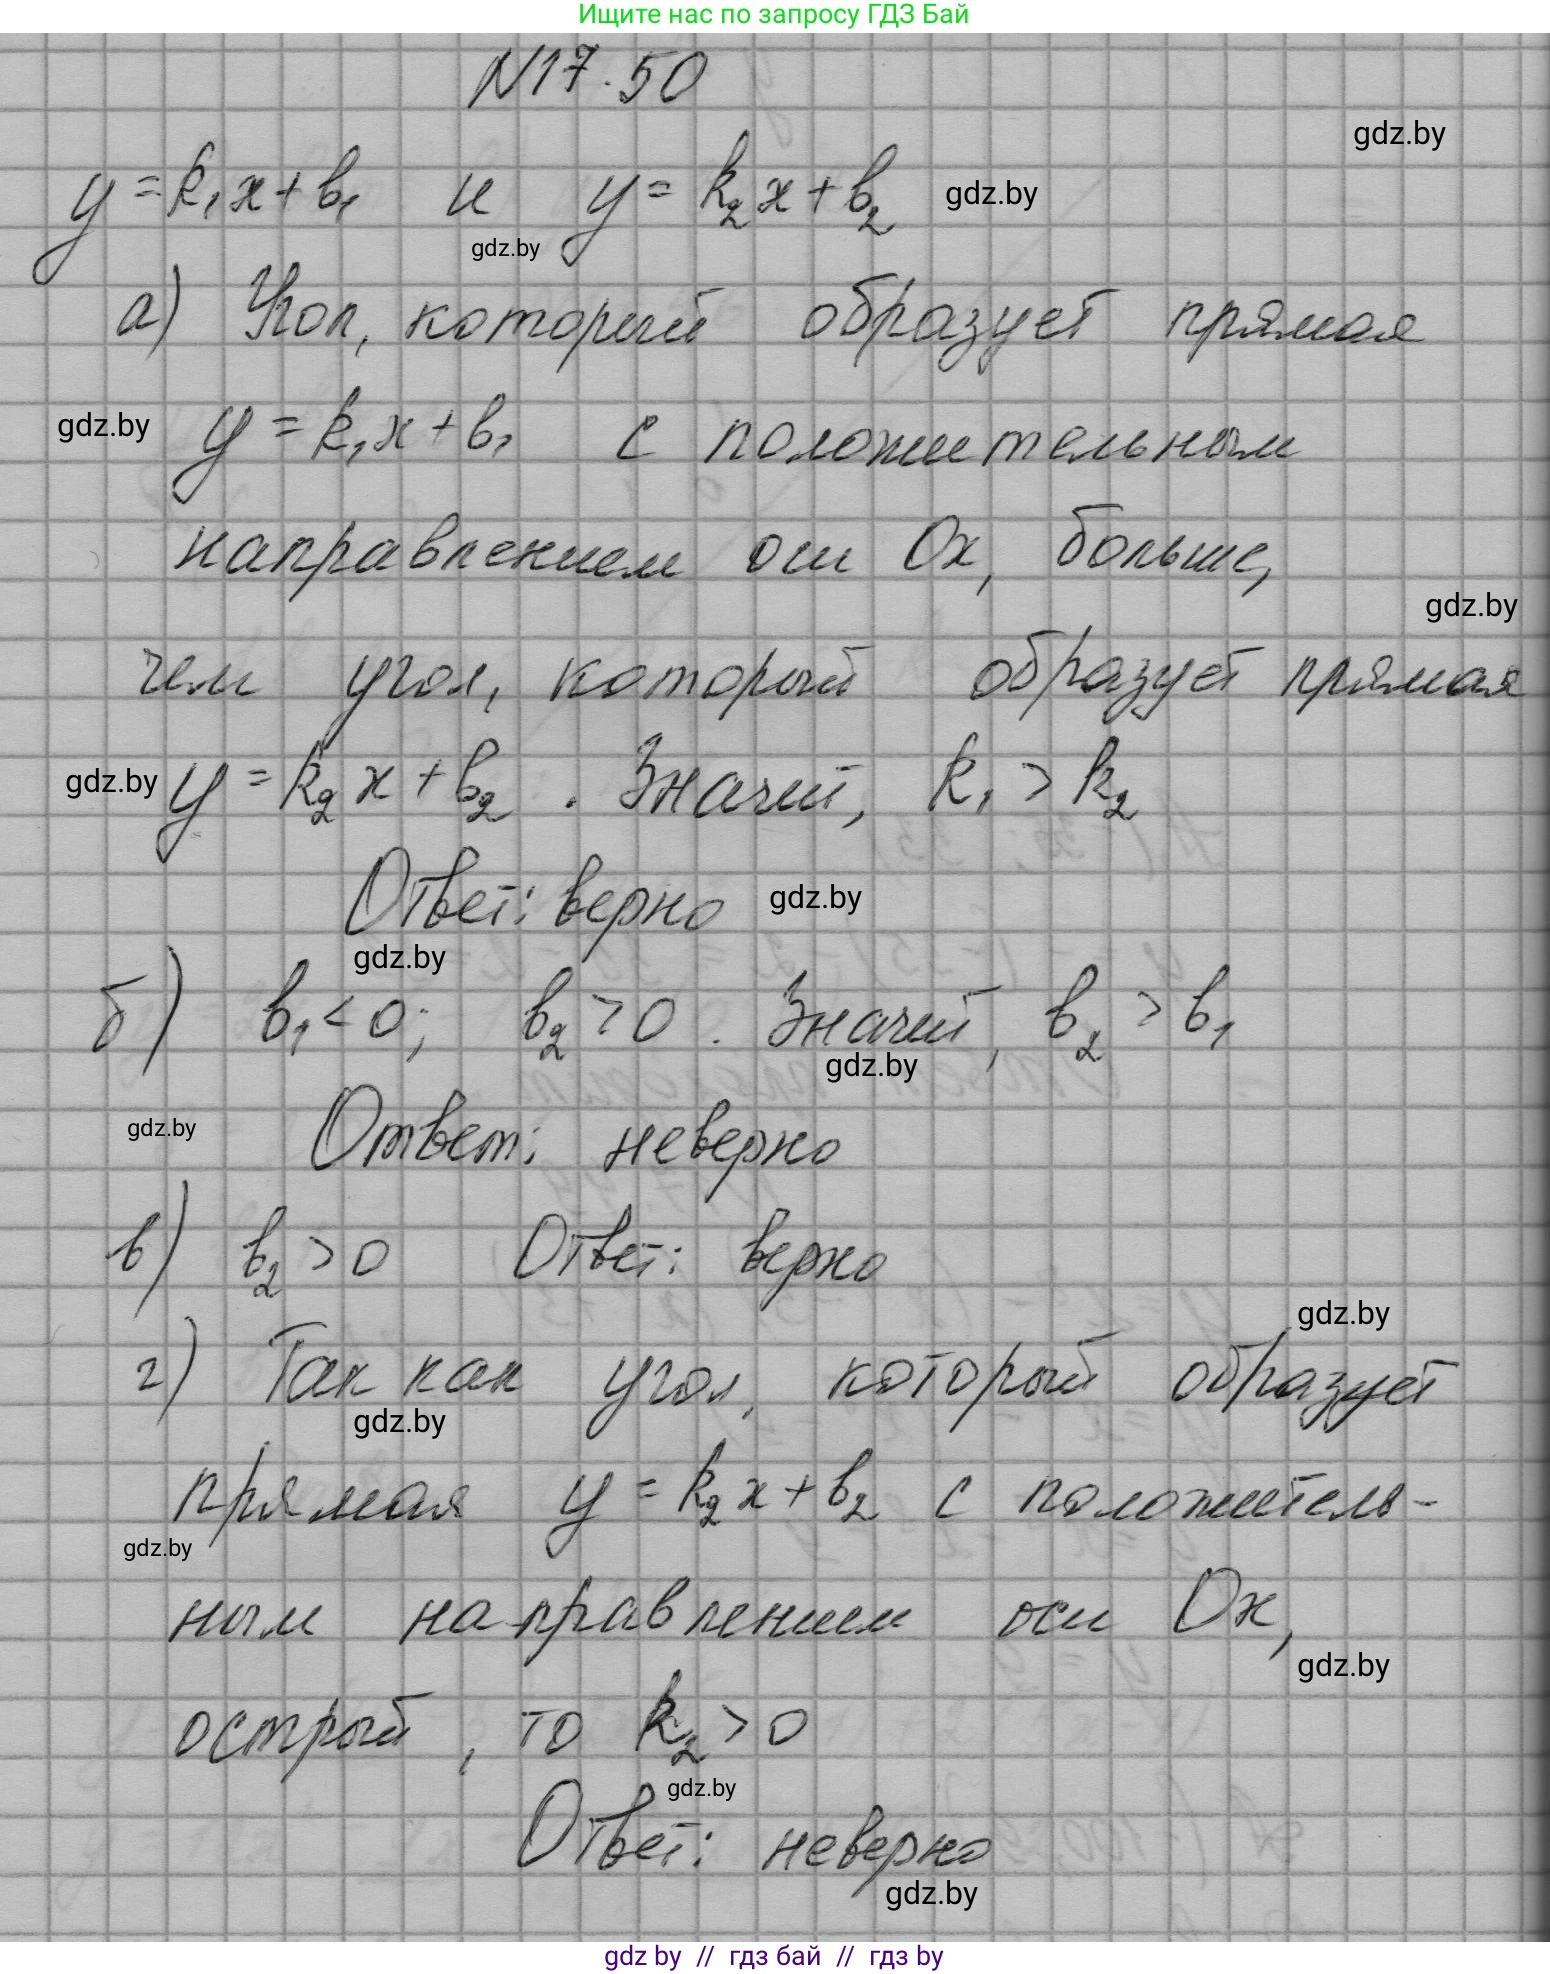 Ищите нас по запросу ГДЗ Бай
N17.50
gdz.by
y = k₁x + b₁ и y = k₂x + b₂ gdz.by
gdz.by
а) Угол, который образует прямая
gdz.by y = k₁x + b₁ с положительным
направлением оси Ox, больше,
gdz.by
чем угол, который образует прямая
gdz.by y = k₂x + b₂. Значит, k₁ > k₂
Ответ: верно gdz.by
gdz.by
б) b₁ < 0; b₂ > 0. Значит, b₂ > b₁
gdz.by
gdz.by
Ответ: неверно
в) b₂ > 0 Ответ: верно
gdz.by
г) Так как угол, который образует
gdz.by
прямая y = k₂x + b₂ с положитель-
gdz.by
ным направлением оси Ox,
gdz.by
острый, то k₂ > 0
gdz.by
Ответ: неверно
gdz.by
gdz by // гдз бай // гдз by